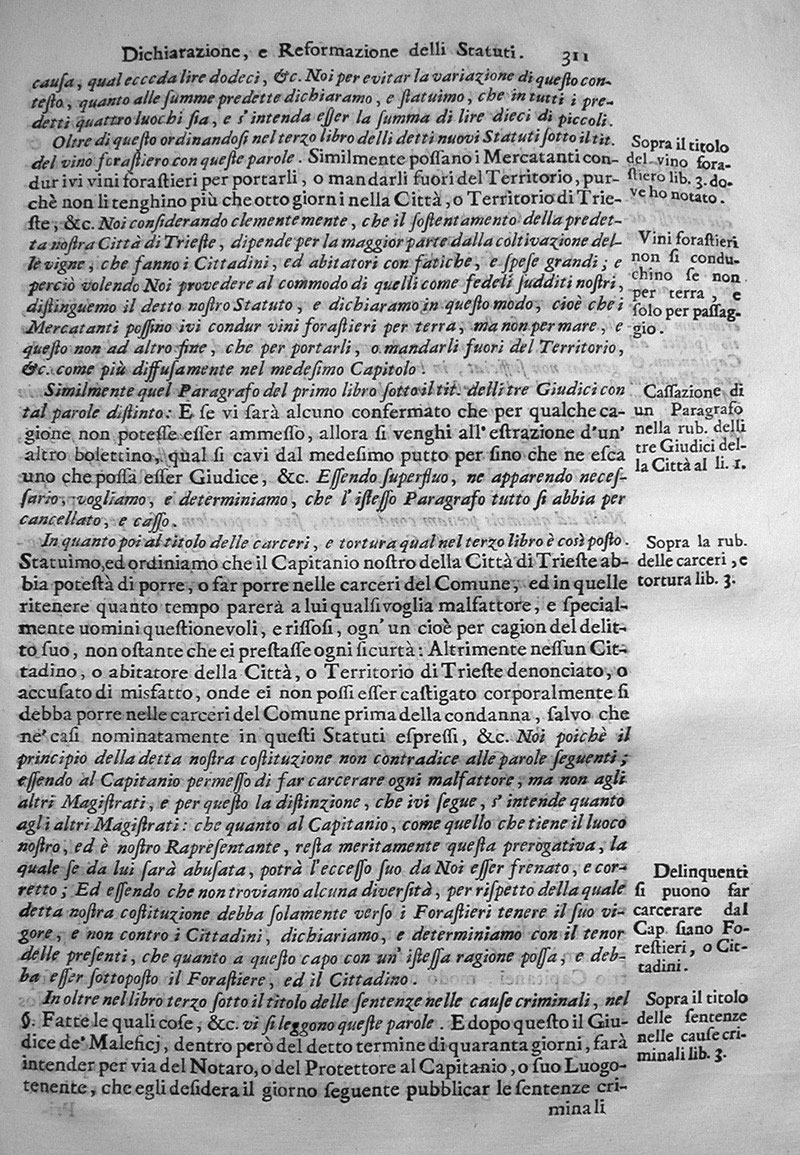 Dichiarazione, e Reformazione delli Statuti. 311
cauſa, qual ecceda lire dodeci, &c. Noi per evitar la variazione di queſto con-
teſto, quanto alle ſumme predette dichiaramo, e ſtatuimo, che in tutti i pre-
detti quattro luochi ſia, e s'intenda eſſer la ſumma di lire dieci di piccoli.
Oltre di queſto ordinandoſi nel terzo libro delli detti nuovi Statuti ſotto il tit.
del vino foraſtiero con queſte parole. Similmente poſſano i Mercatanti con-
dur ivi vini foraſtieri per portarli, o mandarli fuori del Territorio, pur-
chè non li tenghino più che otto giorni nella Città, o Territorio di Trie-
ſte, &c. Noi conſiderando clementemente, che il ſoſtentamento della predet-
ta noſtra Città di Trieſte, dipende per la maggior parte dalla coltivazione del-
le vigne, che fanno i Cittadini, ed abitatori con fatiche, e ſpeſe grandi; e
perciò volendo Noi provedere al commodo di quelli come fedeli ſudditi noſtri,
diſtinguemo il detto noſtro Statuto, e dichiaramo in queſto modo, cioè che i
Mercatanti poſſino ivi condur vini foraſtieri per terra, ma non per mare, e
queſto non ad altro fine, che per portarli, o mandarli fuori del Territorio,
&c. come più diffuſamente nel medeſimo Capitolo.
Similmente quel Paragrafo del primo libro ſotto il tit. delli tre Giudici con
tal parole diſtinto: E ſe vi ſarà alcuno confermato che per qualche ca-
gione non poteſſe eſſer ammeſſo, allora ſi venghi all' eſtrazione d'un'
altro bolettino, qual ſi cavi dal medeſimo putto per ſino che ne eſca
uno che poſſa eſſer Giudice, &c. Eſſendo ſuperfluo, ne apparendo neceſ-
ſario, vogliamo, e determiniamo, che l'iſteſſo Paragrafo tutto ſi abbia per
cancellato, e caſſo.
In quanto poi al titolo delle carceri, e tortura qual nel terzo libro è così poſto.
Statuimo, ed ordiniamo che il Capitanio noſtro della Città di Trieſte ab-
bia poteſtà di porre, o far porre nelle carceri del Comune, ed in quelle
ritenere quanto tempo parerà a lui qualſivoglia malfattore, e ſpecial-
mente uomini queſtionevoli, e riſſoſi, ogn' un cioè per cagion del delit-
to ſuo, non oſtante che ei preſtaſſe ogni ſicurtà: Altrimente neſſun Cit-
tadino, o abitatore della Città, o Territorio di Trieſte denonciato, o
accuſato di misfatto, onde ei non poſſi eſſer caſtigato corporalmente ſi
debba porre nelle carceri del Comune prima della condanna, ſalvo che
ne' caſi nominatamente in queſti Statuti eſpreſſi, &c. Noi poichè il
principio della detta noſtra coſtituzione non contradice alle parole ſeguenti;
eſſendo al Capitanio permeſſo di far carcerare ogni malfattore, ma non agli
altri Magiſtrati, e per queſto la diſtinzione, che ivi ſegue, s'intende quanto
agli altri Magiſtrati: che quanto al Capitanio, come quello che tiene il luoco
noſtro, ed è noſtro Rapreſentante, reſta meritamente queſta prerogativa, la
quale ſe da lui ſarà abuſata, potrà l'ecceſſo ſuo da Noi eſſer frenato, e cor-
retto; Ed eſſendo che non troviamo alcuna diverſità, per riſpetto della quale
detta noſtra coſtituzione debba ſolamente verſo i Foraſtieri tenere il ſuo vi-
gore, e non contro i Cittadini, dichiariamo, e determiniamo con il tenor
delle preſenti, che quanto a queſto capo con un' iſteſſa ragione poſſa, e deb-
ba eſſer ſottopoſto il Foraſtiere, ed il Cittadino.
In oltre nel libro terzo ſotto il titolo delle ſentenze nelle cauſe criminali, nel
§. Fatte le quali coſe, &c. vi ſi leggono queſte parole. E dopo queſto il Giu-
dice de' Maleficj, dentro però del detto termine di quaranta giorni, farà
intender per via del Notaro, o del Protettore al Capitanio, o ſuo Luogo-
tenente, che egli deſidera il giorno ſeguente pubblicar le ſentenze cri-
minali
Sopra il titolo
del vino fora-
ſtiero lib. 3. do-
ve ho notato.
Vini foraſtieri
non ſi condu-
chino ſe non
per terra, e
ſolo per paſſag-
gio.
Caſſazione di
un Paragrafo
nella rub. delli
tre Giudici del-
la Città al li. 1.
Sopra la rub.
delle carceri, e
tortura lib. 3.
Delinquenti
ſi puono far
carcerare dal
Cap. ſiano Fo-
reſtieri, o Cit-
tadini.
Sopra il titolo
delle ſentenze
nelle cauſe cri-
minali lib. 3.